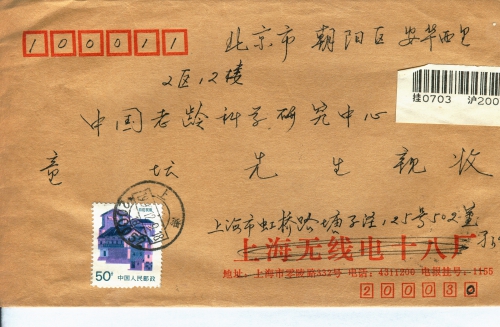 100011
北京市 朝阳区 安华西里
2区12楼
中国老龄科学研究中心
坛 先生 亲收
挂0703 沪200
上海市虹桥路 125号502室
上海无线电十八厂
地址:上海市 332号 电话:4311200 电报挂号:1155
200030
50分 中国人民邮政